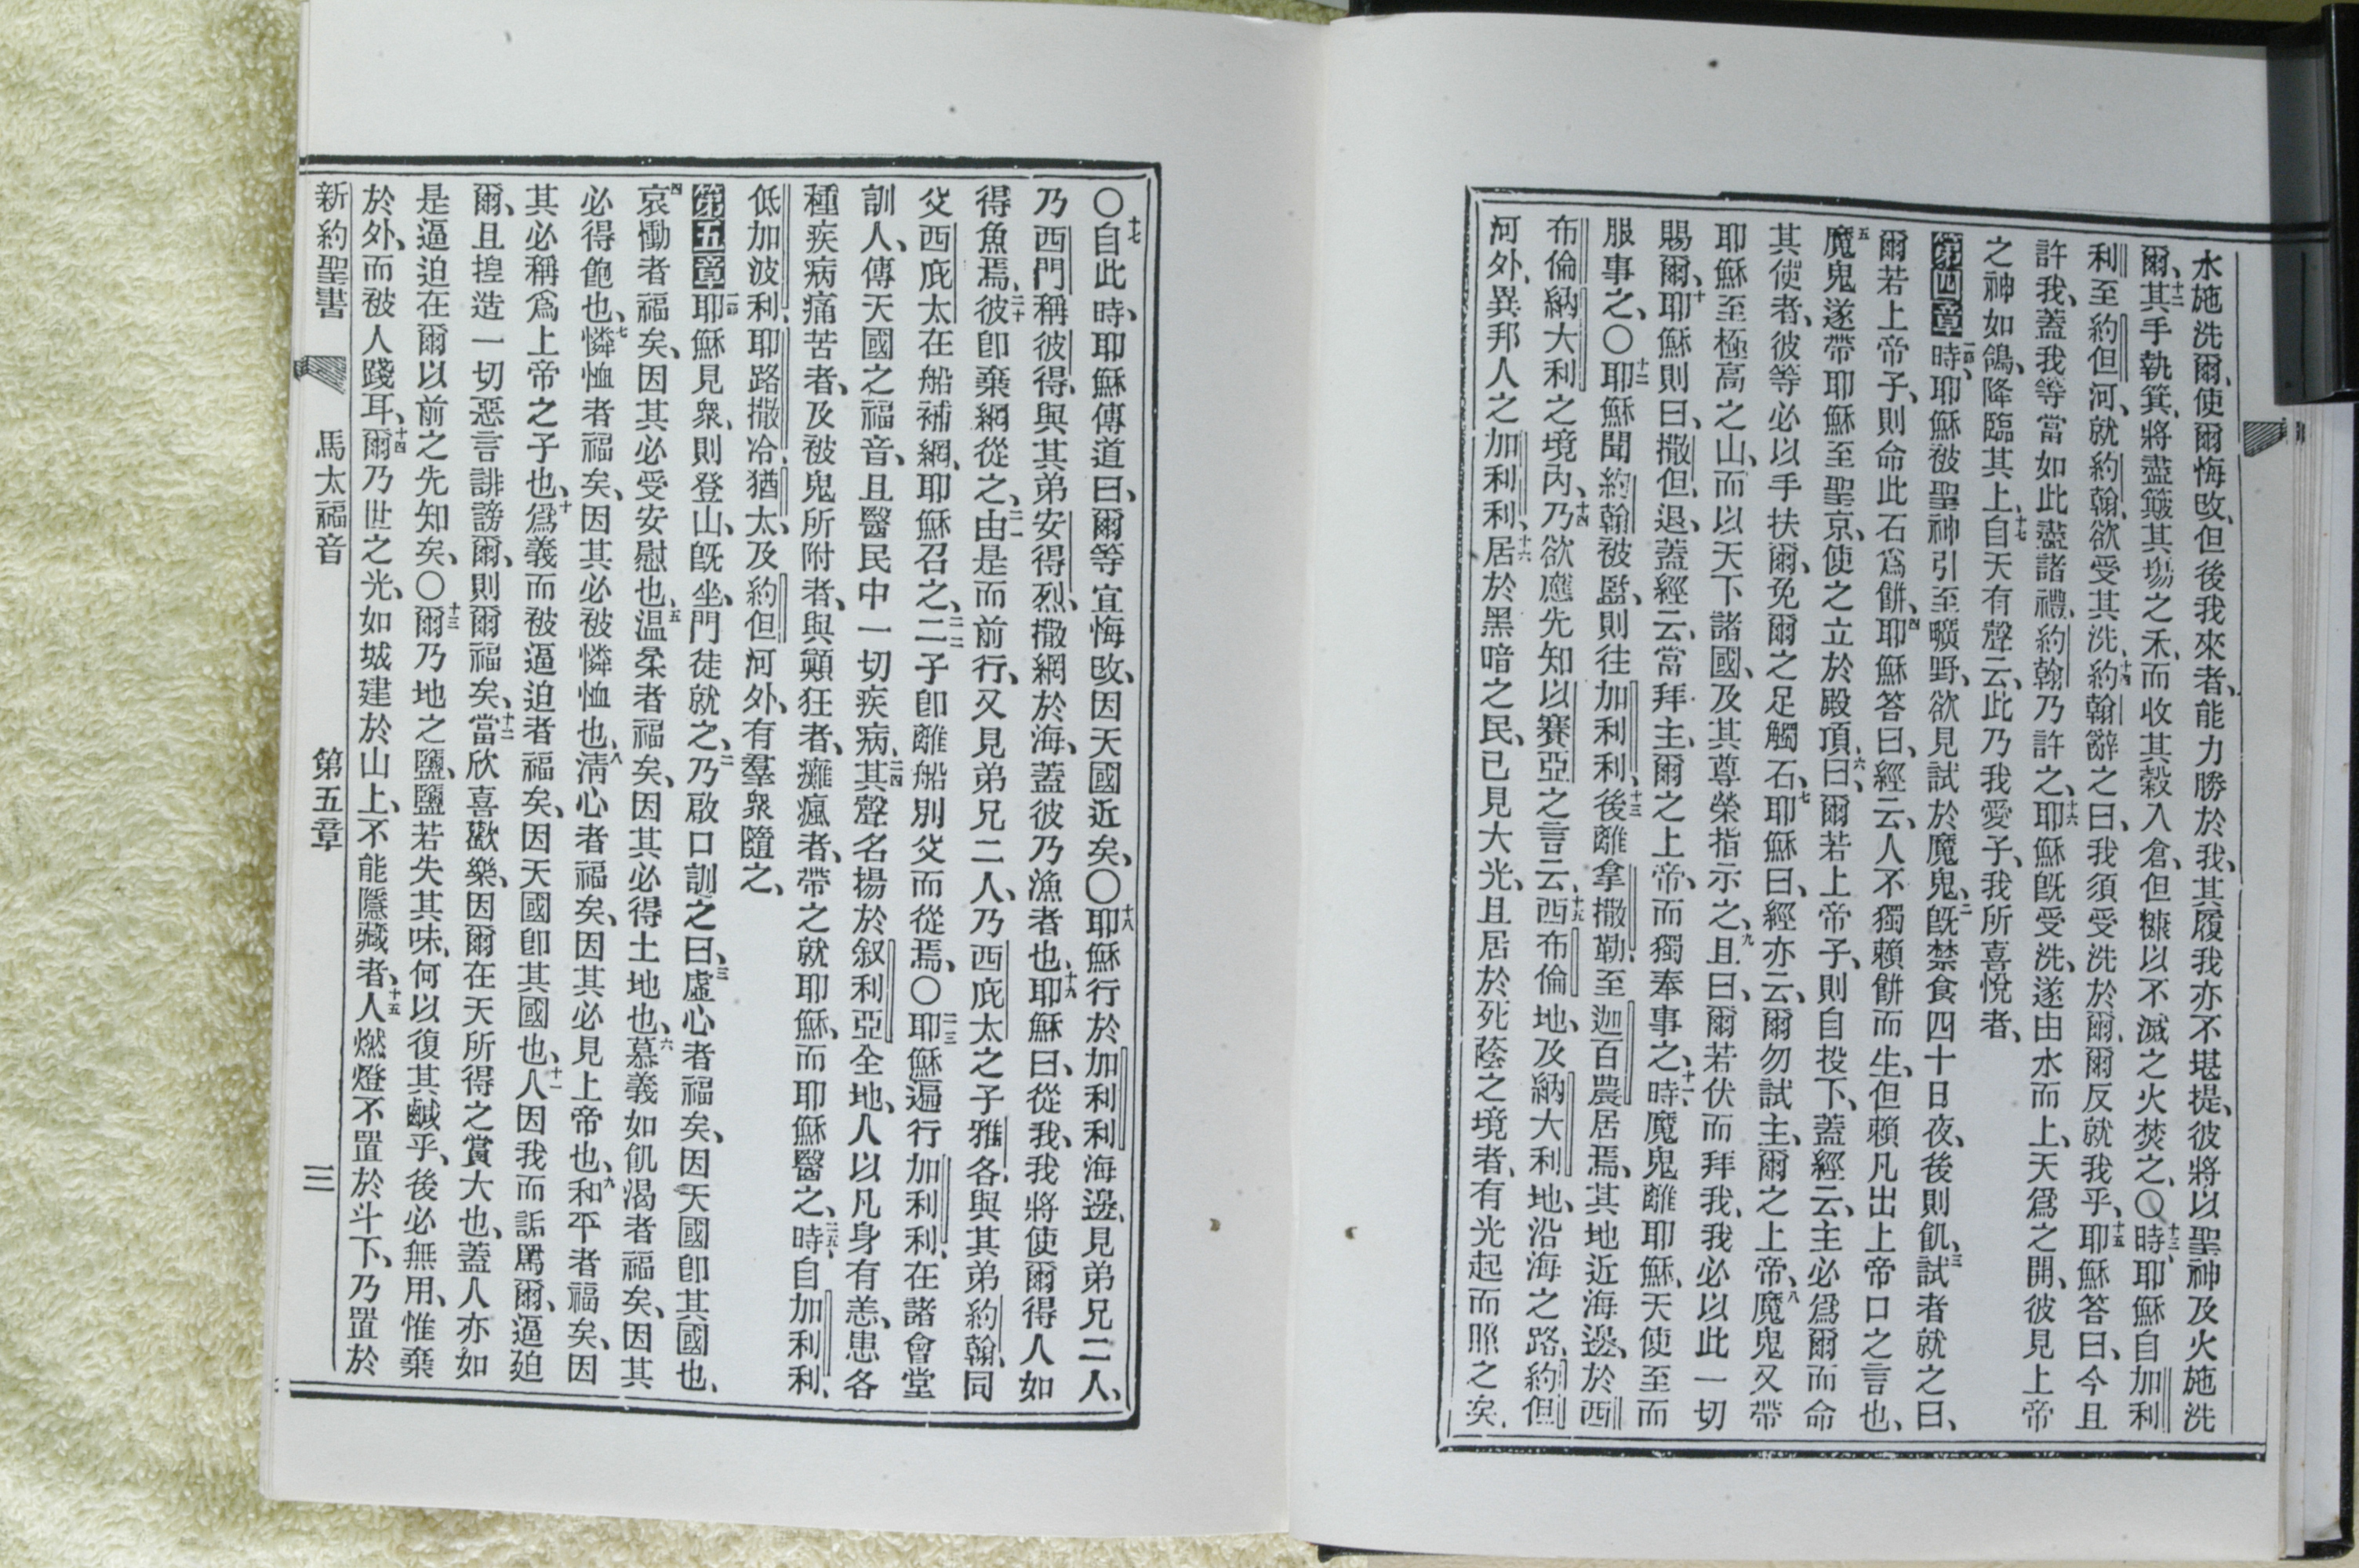 水施洗爾、使爾悔改、但後我來者、能力勝於我、其履我亦不堪提、彼將以聖神及火施洗
爾、十二其手執箕、將盡簸其塲之禾、而收其穀入倉、但糠以不滅之火焚之、〇十三時、耶穌自加利
利至約但河、就約翰、欲受其洗、十四約翰辭之曰、我須受洗於爾、爾反就我乎、十五耶穌答曰、今且
許我、蓋我等當如此盡諸禮、約翰乃許之、十六耶穌旣受洗、遂由水而上、天爲之開、彼見上帝
之神如鴿、降臨其上、十七自天有聲云、此乃我愛子、我所喜悅者、
第四章一節時、耶穌被聖神引至曠野、欲見試於魔鬼、二旣禁食四十日夜、後則飢、三試者就之曰、
爾若上帝子、則命此石爲餅、四耶穌答曰、經云、人不獨賴餅而生、但賴凡出上帝口之言也、
五魔鬼遂帶耶穌至聖京、使之立於殿頂、六曰、爾若上帝子、則自投下、蓋經云、主必爲爾而命
其使者、彼等必以手扶爾、免爾之足觸石、七耶穌曰、經亦云、爾勿試主、爾之上帝、八魔鬼又帶
耶穌至極高之山、而以天下諸國、及其尊榮指示之、九且曰、爾若伏而拜我、我必以此一切
賜爾、十耶穌則曰、撒但、退、蓋經云、當拜主、爾之上帝、而獨奉事之、十一時、魔鬼離耶穌、天使至而
服事之、〇十二耶穌聞約翰被監、則往加利利、十三後離拿撒勒、至迦百農居焉、其地近海邊、於西
布倫納大利之境內、十四乃欲應先知以賽亞之言云、十五西布倫地、及納大利地、沿海之路、約但
河外、異邦人之加利利、十六居於黑暗之民、已見大光、且居於死蔭之境者、有光起而照之矣、
〇十七自此時、耶穌傳道曰、爾等宜悔改、因天國近矣、〇十八耶穌行於加利利海邊、見弟兄二人、
乃西門稱彼得、與其弟安得烈、撒網於海、蓋彼乃漁者也、十九耶穌曰、從我、我將使爾得人如
得魚焉、二十彼卽棄網從之、二一由是而前行、又見弟兄二人、乃西庇太之子雅各、與其弟約翰、同
父西庇太在船補網、耶穌召之、二二二子卽離船別父而從焉、〇二三耶穌遍行加利利、在諸會堂
訓人、傳天國之福音、且醫民中一切疾病、二四其聲名揚於叙利亞全地、人以凡身有恙、患各
種疾病痛苦者、及被鬼所附者、與顚狂者、癱瘋者、帶之就耶穌、而耶穌醫之、二五時、自加利利、
低加波利、耶路撒冷、猶太、及約但河外、有羣衆隨之、
第五章一節耶穌見衆、則登山、旣坐、門徒就之、二乃啟口訓之曰、三虛心者福矣、因天國卽其國也、
四哀慟者福矣、因其必受安慰也、五温柔者福矣、因其必得土地也、六慕義如飢渴者福矣、因其
必得飽也、七憐恤者福矣、因其必被憐恤也、八淸心者福矣、因其必見上帝也、九和平者福矣、因
其必稱爲上帝之子也、十爲義而被逼迫者福矣、因天國卽其國也、十一人因我而詬罵爾、逼廹
爾、且揑造一切惡言誹謗爾、則爾福矣、十二當欣喜歡樂、因爾在天所得之賞大也、蓋人亦如
是逼迫在爾以前之先知矣、〇十三爾乃地之鹽、鹽若失其味、何以復其鹹乎、後必無用、惟棄
於外、而被人踐耳、十四爾乃世之光、如城建於山上、不能隱藏者、十五人燃燈不置於斗下、乃置於
新約聖書　馬太福音　第五章　三